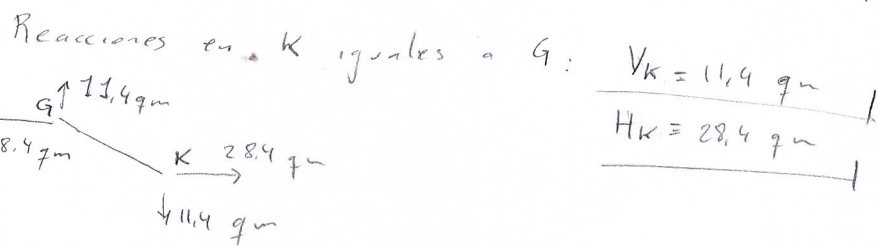 Reacciones en K iguales a G:
VK = 11,4 qm
HK = 28,4 qm
G 11,4 qm
8.4 qm
K 28,4 qm
11,4 qm